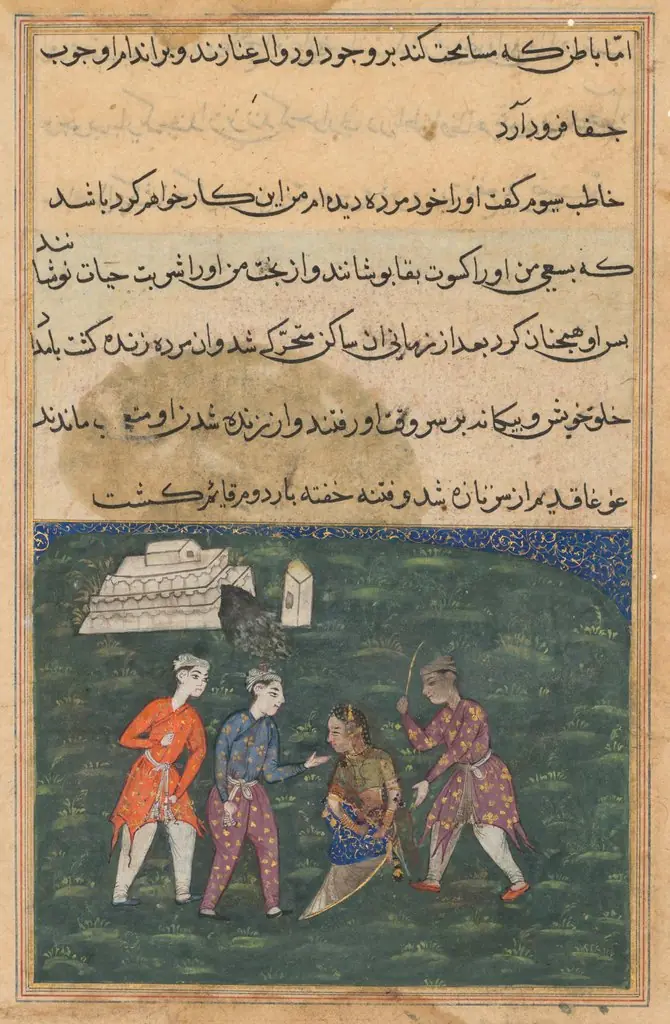 اما باطن که مسامحت کند بر وجود او دوال عنا زند و بر اندام او چوب
جفا فرود آرد
خاطب سیوم گفت او را خود مرده دیده ام من این کار خواهم کرد باشد
که بسعی من او را کسوت بقا بوشانند و از بخت من او را شربت حیات نوشا
نند
بس او همچنان کرد بعد از زمانی ان ساکن متحرک شد وان مرده زنده کشت بامدا
د
خلق خویش و بیکانه بر سر وقت او رفتند و از زنده شدن او متعجب ماندند
غوغا قدیم از سر تازه شد و فتنه خفته بار دوم قایم کشت